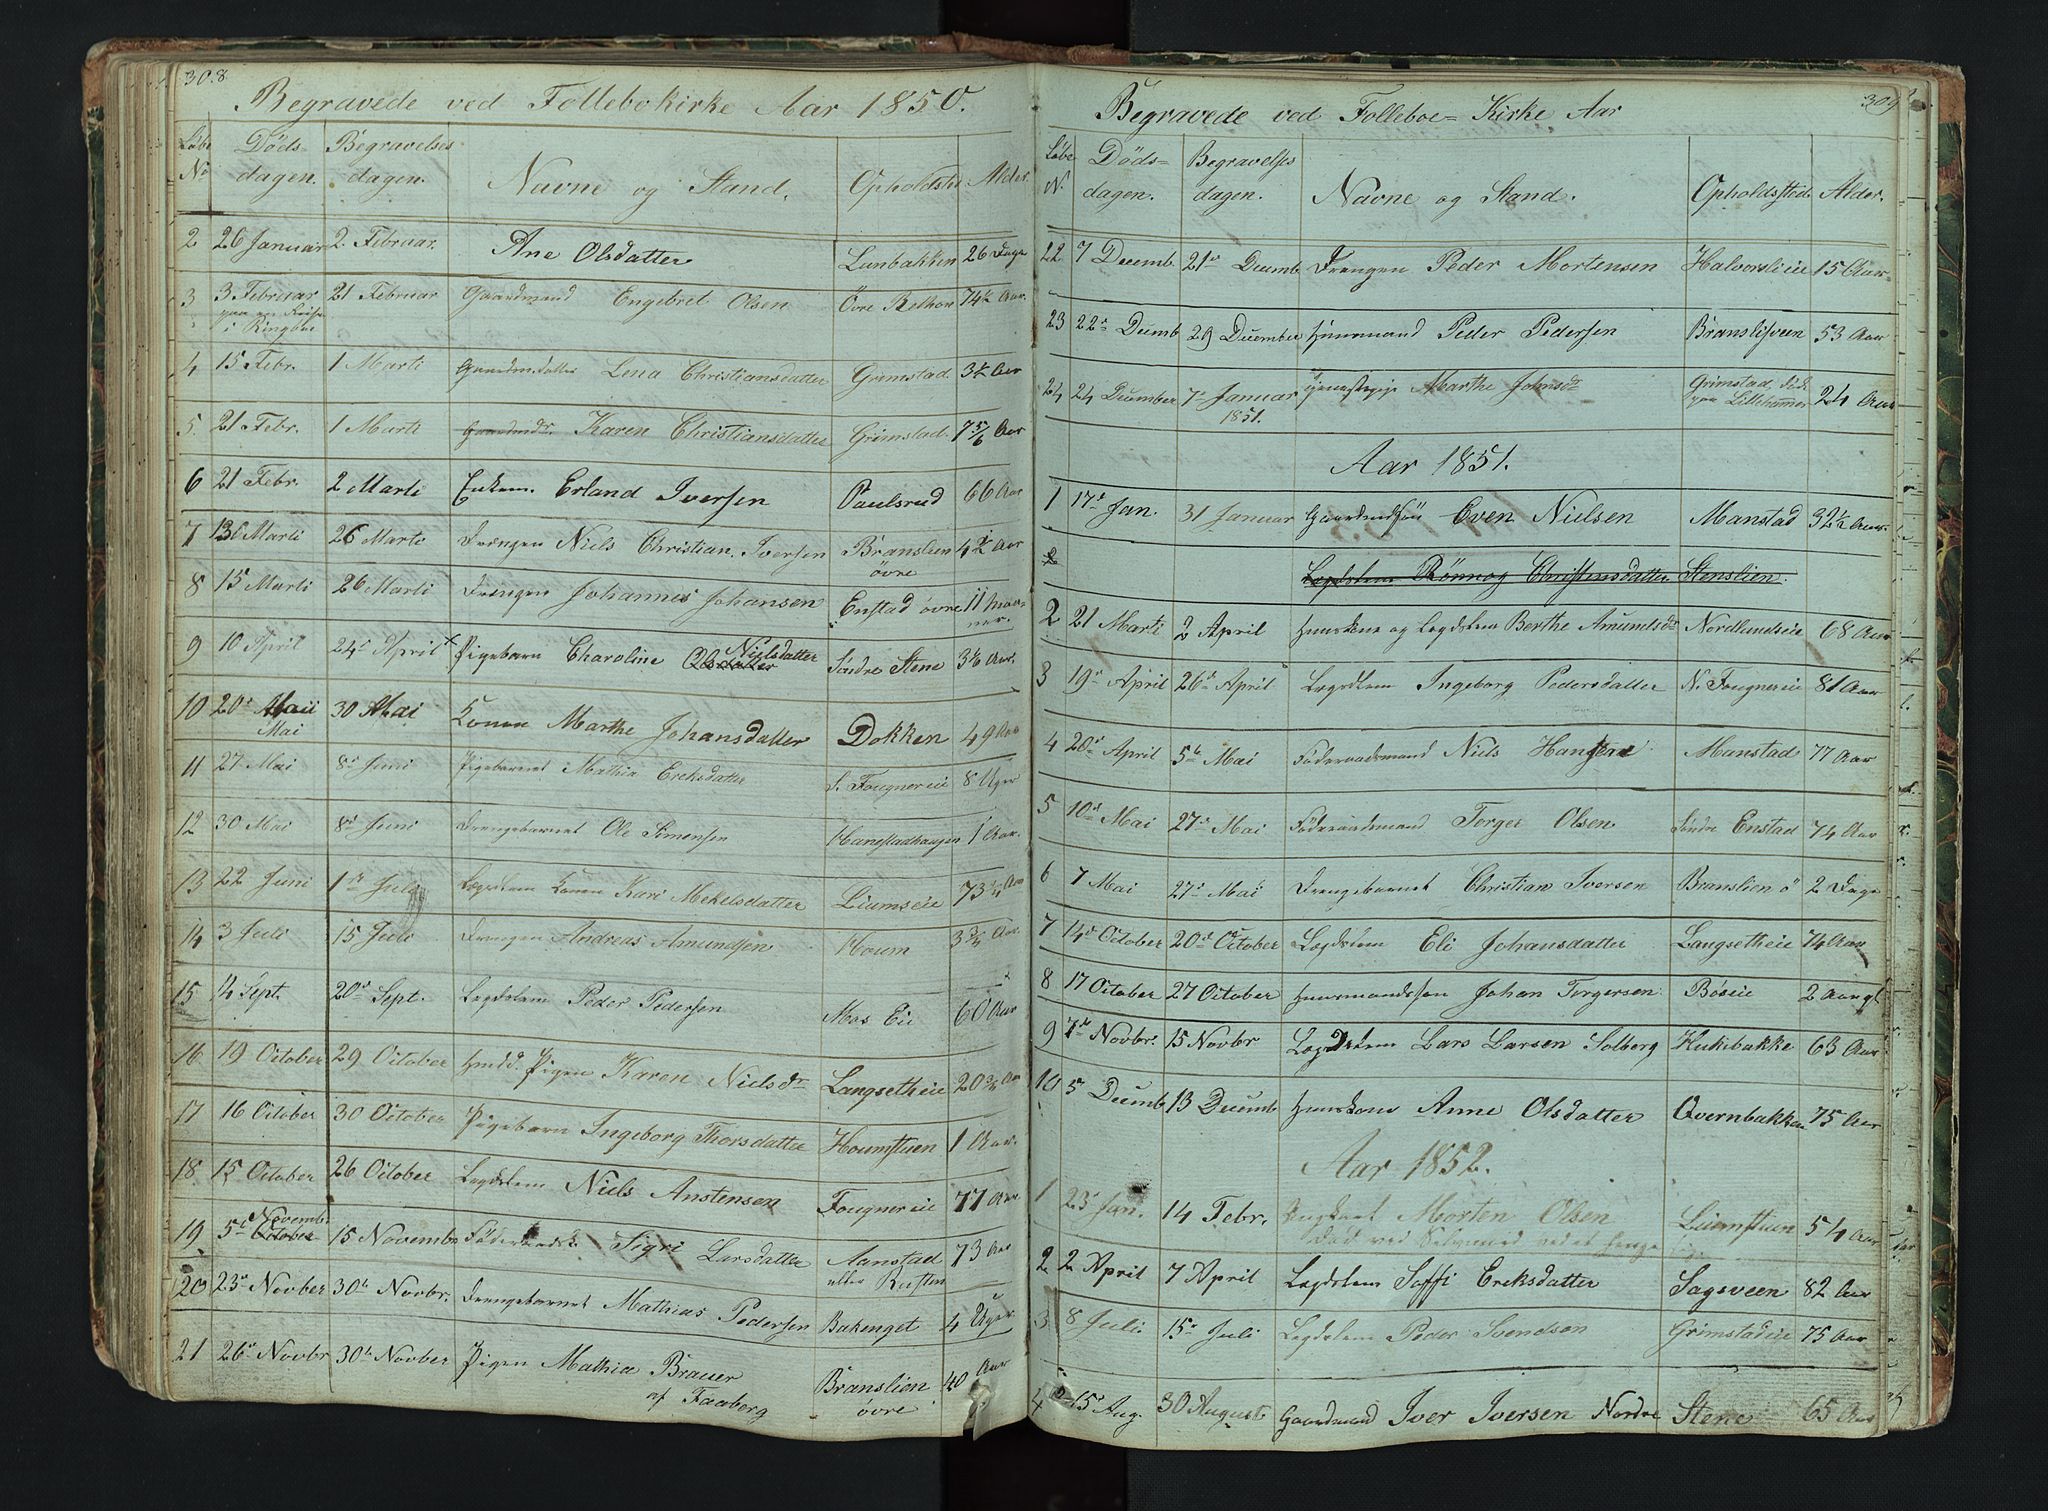 308
Begravede ved Follebokirke Aar 1850.
Løbe No Døds- dagen. Begravelses dagen. Navne og Stand. Opholdsted Alder.
2 26 Januar 2. Februar. Ane Olsdatter Lunbakken 26 Dage
3 3 Februar 21 Februar Gaardmand Engebret Olsen Övre 74½ Aar.
paa en Reise
i Ringbue
4 15 Febr. 1 Marti Lena Christiansdatter Grimstad. 3½ Aar
5. 21 Febr. 1 Marti Karen Christiansdatter Grimstad. 7 5/6 Aar
6 21 Febr. 2 Marti Erland Iversen Paulsrud 66 Aar
7 13 Marti 26 Marti Drengen Niels Christian Iversen Branslien 4½ Aar
övre
8 15 Marti 26 Marti Drengen Johannes Johansen Enstad övre 11 Maa-
neder.
9 10 April 24de April Pigebarn Charoline Olsdatter Nielsdatter Söndre Stene 3 Aar.
10 20de Maii 30 Mai Konen Marthe Johansdatter Dokken 49 Aar
Mai
11 27 Mai 8de Juni Pigebarnet Mathia Ereksdatter S. Fougnereie 8 Uger
12 30 Mai 8de Juni Drengebarnet Ole Simensen Hanestadhaugen 1 Aar.
13 22 Juni 1ste July Legdslem Konen Kari Mekelsdatter Liumseie 73 Aar
14 3 Juli 15 Juli Drengen Andreas Amundsen Houm 3¾ Aar
15 Sept. 20de Sept. Legdslem Peder Pedersen Mos Eie 60 Aar
16 19 October 29 October Pigen Karen Nielsdr. Langsetheie 20¾ Aar
17 16 October 30 October Pigebarn Ingeborg Thorsdatter Houmstuen 1 Aar.
18. 15 October 26 October Legdslem Niels Anstensen Fougnereie 77 Aar.
19 5te October Novembr 15 Novembr Sigri Larsdatter Aanstad 73 Aar
eller
20 23de Novber 30te Novbr. Drengebarnet Mathias Pedersen Bakenget 4 Uger.
21 26de Novbr 30te Novber Pigen Mathia Brauer Branslien 40 Aar
af Faaberg övre
309
Begravede ved Folleboe-Kirke Aar
Løbe N. Døds- dagen. Begravelses dagen. Navne og Stand. Opholdssted Alder.
22 7 Decemb. 21de Decemb Drengen Peder Mortensen Halvorslieie 15 Aar
23 22de Decemb 29 December Huusmand Peder Pedersen Branslisveen 53 Aar
24 24 December 7de Januar Marthe Johnsdr Grimstad, död 24 Aar
1851. paa Lillehammer
Aar 1851.
1 17de Jan. 31 Januar Gaardmdsön Even Nielsen Manstad 32½ Aar.
2 Legdslem Rönnog Christensdatter Stenslien.
2 21 Marti 2 April Huuskone og Legdslem Berthe Amundsdr Nordlundseie 68 Aar
3 19de April 26de April Legdslem Ingeborg Pedersdatter N. Fougnereie 81 Aar
4 20de April 5te Mai Föderaadsmand Niels Hansen Manstad 77 Aar
5 10de Mai 27de Mai Föderaadsmand Torger Olsen Söndre Enstad 74 Aar
6 7 Mai 27de Mai Drengebarnet Christian Iversen Branslien ö 2 Dage
7 14de October 20de October Legdslem Eli Johansdatter Langsetheie 74 Aar
8 17 October 27 October Huusmandssøn Johan Torgersen Böseie 2 Aar gl
9 7de Novbr. 15 Novbr Legdslem Lars Larsen Solberg Kukibakke 63 Aar
10 5te Decemb 13 Decemb Huuskone Anne Olsdatter Overnbakken 75 Aar
Aar 1852.
1 23de Jan. 14 Febr. Ungkarl Morten Olsen Liumstuen 54 Aar
Död ved Selvmord ved at henge sig
2 2 April 7 April Legdslem Soffi Ereksdatter Sagsveen 82 Aar
3 8 Juli 15de Juli Legdslem Peder Svendsön Grimstadeie 75 Aar
4 15de Aug. 30 August Gaardmand Iver Iversen Nordre Stene 65 Aar